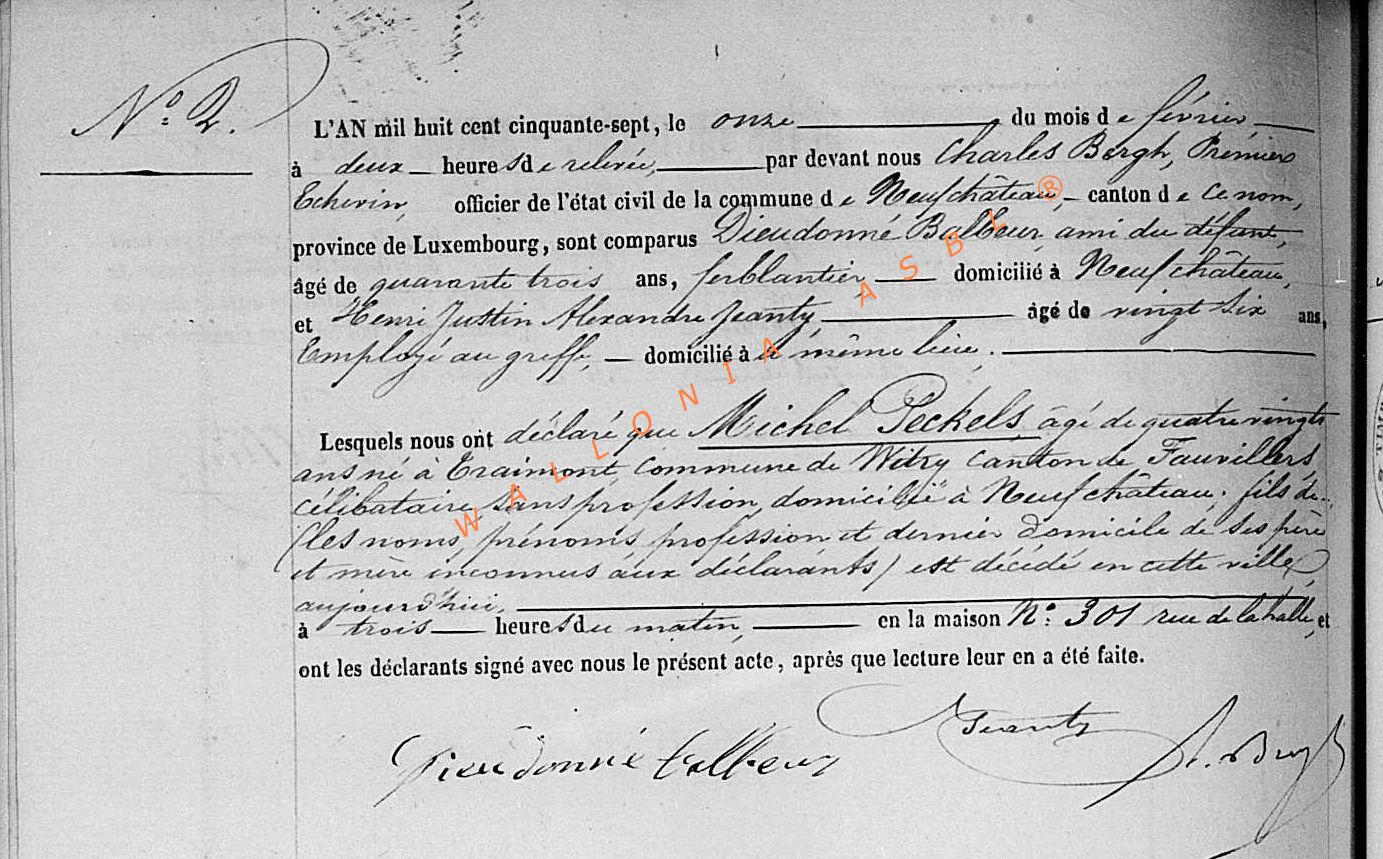 N° 2.
L'AN mil huit cent cinquante-sept, le onze du mois de février
à deux heures de relevée, par devant nous Charles Bergh, Premier
Echevin, officier de l'état civil de la commune de Neufchâteau, canton de ce nom,
province de Luxembourg, sont comparus Dieudonné Balbeur, ami du défunt,
âgé de quarante trois ans, ferblantier domicilié à Neufchâteau,
et Henri Justin Alexandre Jeanty, âgé de vingt six ans,
Employé au greffe, domicilié à même lieu.
Lesquels nous ont déclaré que Michel Peckels, âgé de quatre vingts
ans né à Traimont, Commune de Witry Canton de Fauvillers,
célibataire, sans profession, domicilié à Neufchâteau, fils de
(les noms, prénoms, profession et dernier domicile de ses père
et mère inconnus aux déclarants) est décédé en cette ville
aujourd'hui,
à trois heures du matin, en la maison N° 301 rue de la halle, et
ont les déclarants signé avec nous le présent acte, après que lecture leur en a été faite.
Dieudonné balbeur Jeanty
WALLONIA ASBL ®